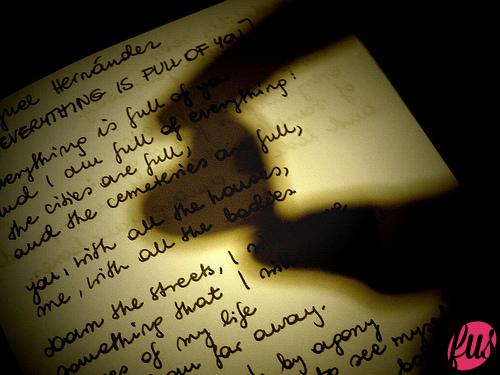 guel Hernández
EVERYTHING IS FULL OF YOU
verything is full of you
and I am full of everything:
the cities are full,
and the cemeteries are full,
you, with all the houses,
me, with all the bodies.
down the streets, I
something that I
of my life
far away.
by agony
to see
fus